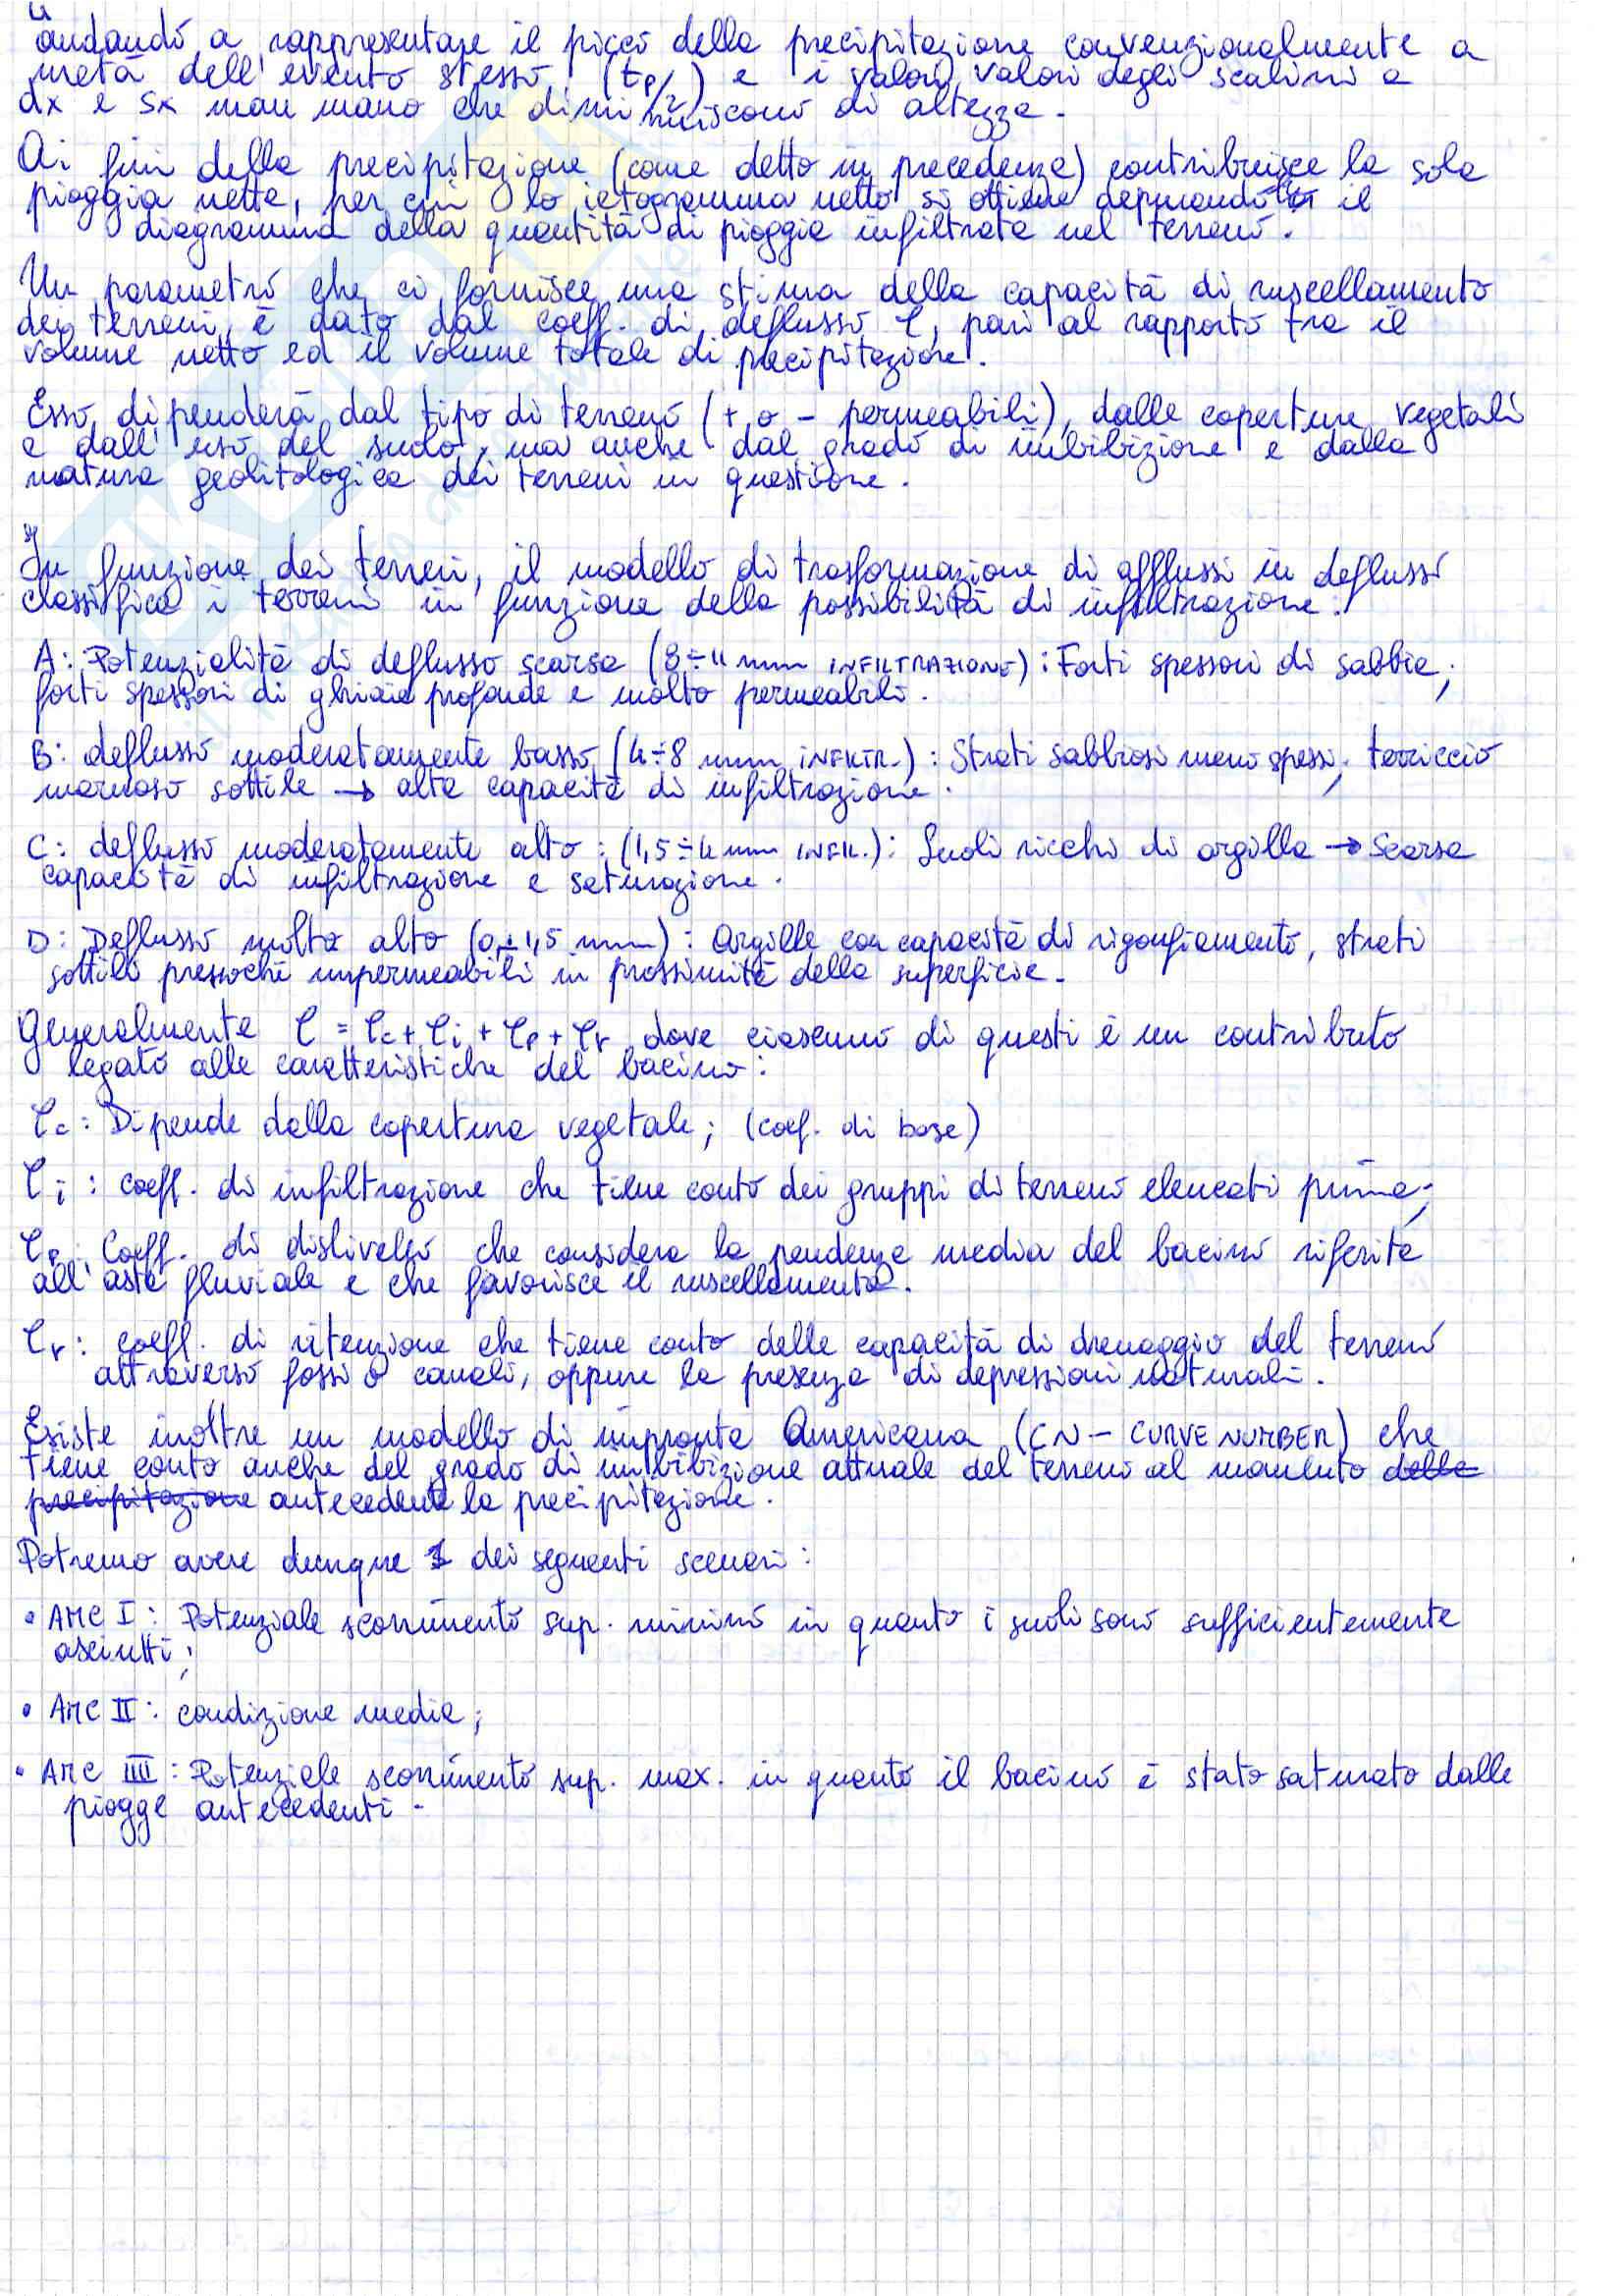 andando a rappresentare il picco della precipitazione convenzionalmente a
metà dell'evento stesso (tp/2) e i valori valori degli scalini a
dx e sx man mano che diminuiscono di altezza.
Ai fini della precipitazione (come detto in precedenza) contribuisce la sola
pioggia netta, per cui lo ietogramma netto si ottiene depurando il
diagramma della quantità di pioggia infiltrata nel terreno.
Un parametro che ci fornisce una stima della capacità di ruscellamento
dei terreni è dato dal coeff. di deflusso C, pari al rapporto tra il
volume netto ed il volume totale di precipitazione.
Esso dipenderà dal tipo di terreno (+ o - permeabili), dalle coperture vegetali
e dall'uso del suolo, ma anche dal grado di imbibizione e dalla
natura geolitologica dei terreni in questione.
In funzione dei terreni, il modello di trasformazione di afflussi in deflussi
classifica i terreni in funzione della possibilità di infiltrazione:
A: Potenzialità di deflusso scarsa (8÷11 mm INFILTRAZIONE): Forti spessori di sabbia;
forti spessori di ghiaia profonde e molto permeabili.
B: deflusso moderatamente basso (4÷8 mm INFILTR.): Strati sabbiosi meno spessi; terriccio
marnoso sottile → alta capacità di infiltrazione.
C: deflusso moderatamente alto: (1,5÷4 mm INFIL.): Suoli ricchi di argilla → Scarsa
capacità di infiltrazione e saturazione.
D: Deflusso molto alto (0÷1,5 mm): Argille con capacità di rigonfiamento, strati
sottili pressoché impermeabili in prossimità della superficie.
Generalmente C = Cc + Ci + Cp + Cr dove ciascuno di questi è un contributo
legato alle caratteristiche del bacino:
Cc: Dipende dalla copertura vegetale; (coef. di base)
Ci: coeff. di infiltrazione che tiene conto dei gruppi di terreno elencati prima;
Cp: Coeff. di dislivello che considera la pendenza media del bacino riferita
all'asta fluviale e che favorisce il ruscellamento.
Cr: coeff. di ritenzione che tiene conto delle capacità di drenaggio del terreno
attraverso fossi o canali, oppure la presenza di depressioni naturali.
Esiste inoltre un modello di impronta Americana (CN - CURVE NUMBER) che
tiene conto anche del grado di imbibizione attuale del terreno al momento delle
precipitazione antecedente la precipitazione.
Potremo avere dunque 3 dei seguenti scenari:
• AMC I: Potenziale scorrimento sup. minimo in quanto i suoli sono sufficientemente
asciutti;
• AMC II: condizione media;
• AMC III: Potenziale scorrimento sup. max. in quanto il bacino è stato saturato dalle
piogge antecedenti.